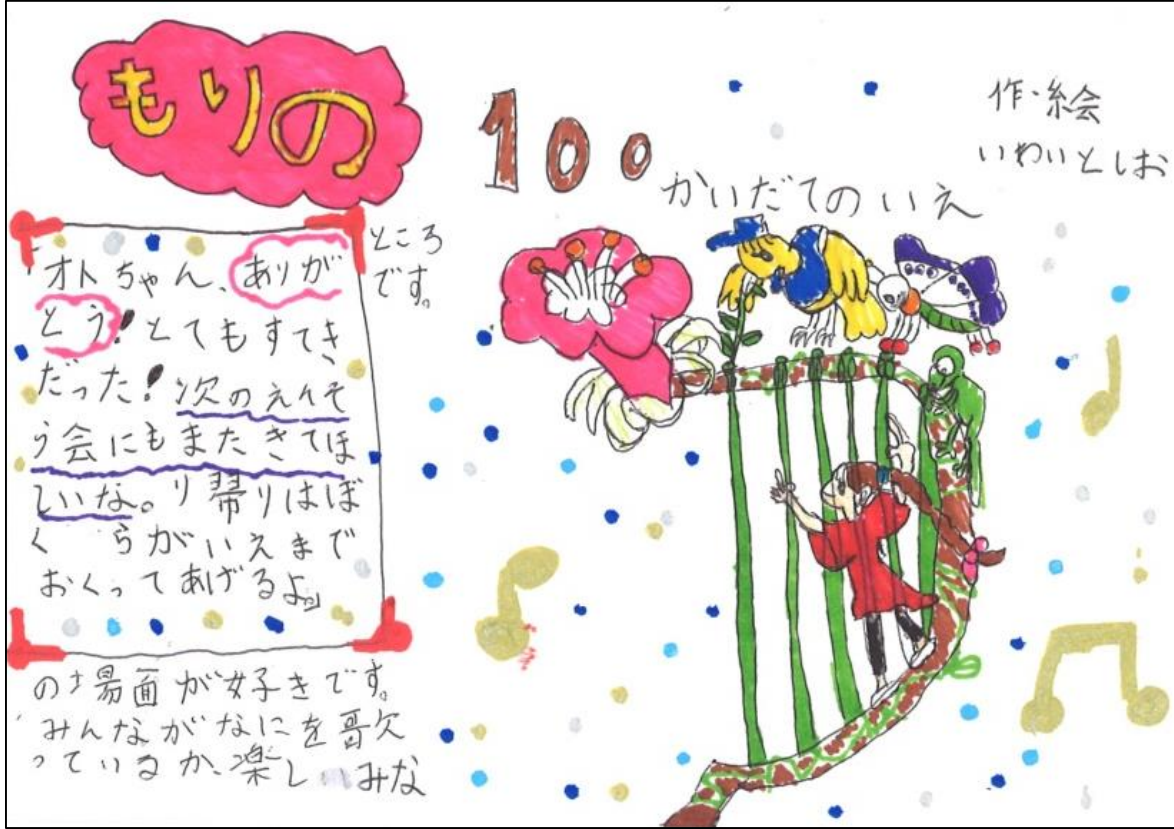 もりの
100
かいだてのいえ
作・絵
いわいとしお
「オトちゃん、ありが
とう!とてもすてき
だった!次のえんそ
う会にもまたきてほ
しいな。り帰りはぼ
くらがいえまで
おくってあげるよ。」
の場面が好きです。
みんながなにを歌
っているか、楽しみな
ところ
です。